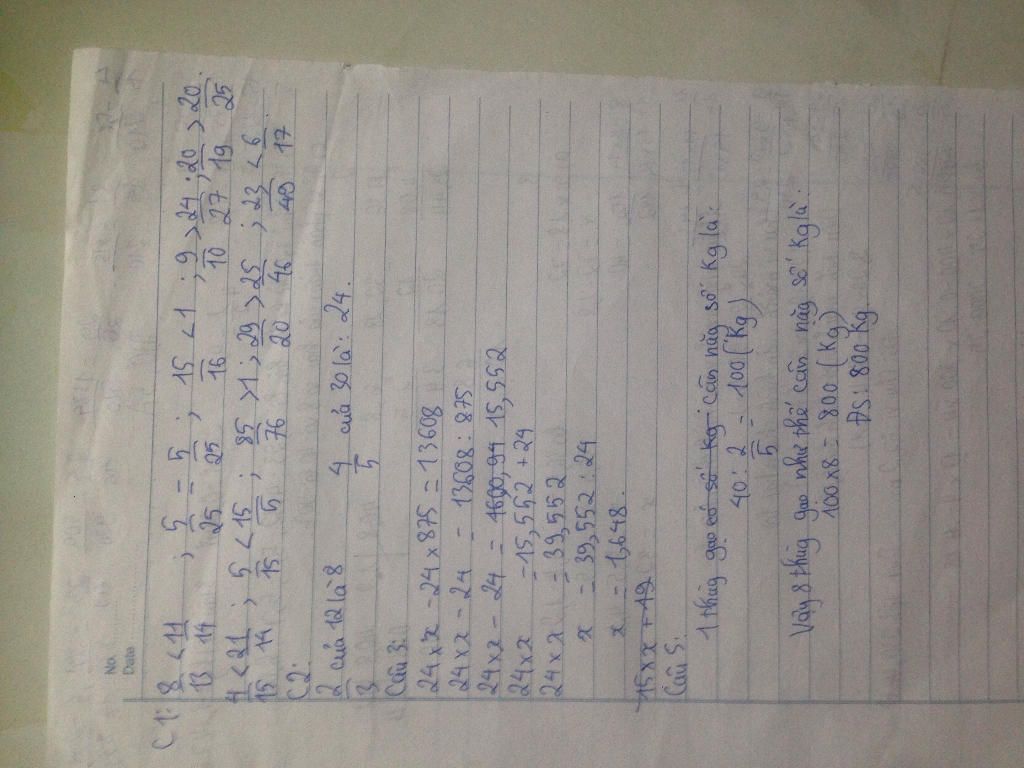 No.
Date
C1: 8/13 < 11/14 ; 5/25 = 5/25 ; 15/16 < 1 ; 9/10 > 24/27 ; 20/19 > 20/25.
4/15 < 21/14 ; 5/15 < 15/5 ; 85/76 > 1 ; 29/20 > 25/46 ; 23/49 < 6/17.
C2:
2/3 của 12 là 8 4/5 của 30 là: 24.
Câu 3:
24 × x - 24 × 875 = 13608
24 × x - 24 = 13608 : 875
24 × x - 24 = 15,552
24 × x = 15,552 + 24
24 × x = 39,552
x = 39,552 : 24
x = 1,648.
15 × x + 19
Câu 5:
1 thùng gạo có số kg cân nặng số kg là:
40 : 2/5 = 100 (kg)
Vậy 8 thùng gạo như thế cân nặng số kg là:
100 × 8 = 800 (kg)
ĐS: 800 kg